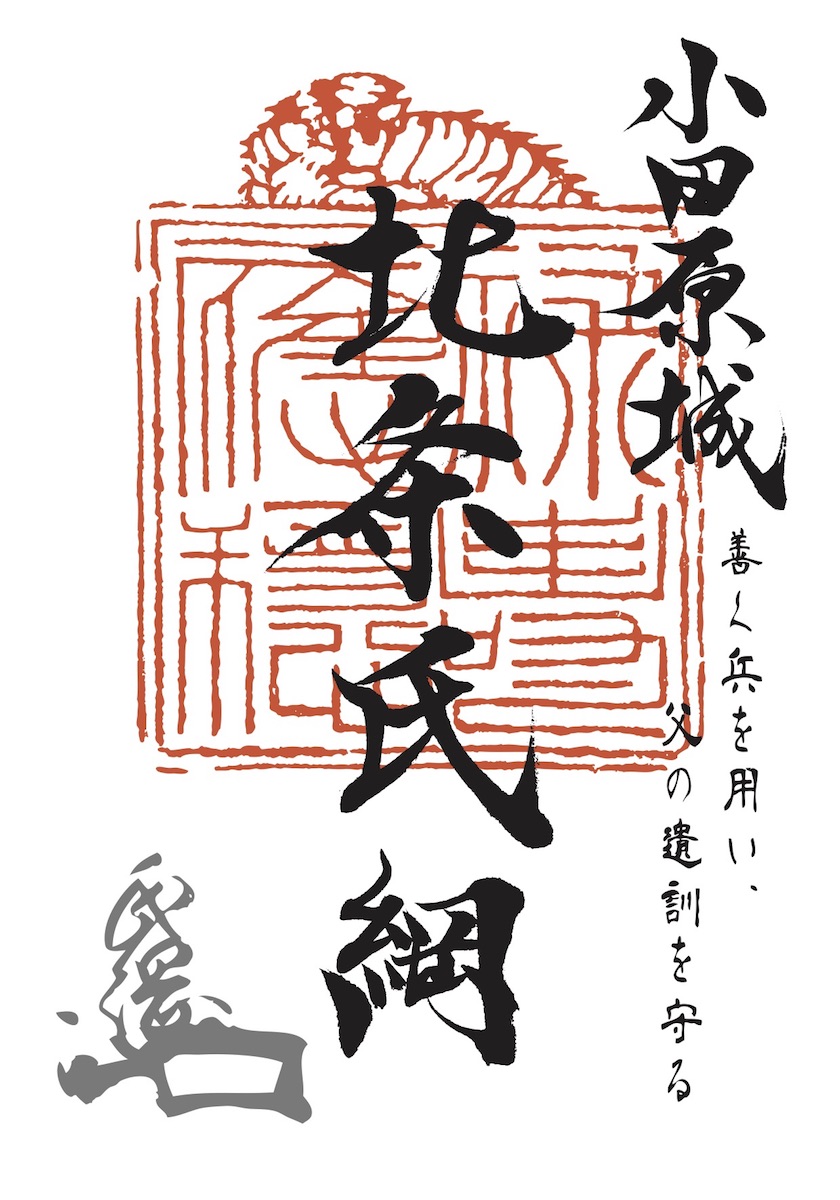 小田原城
善く兵を用い、
父の遺訓を守る
北条氏綱
祿壽
應穩